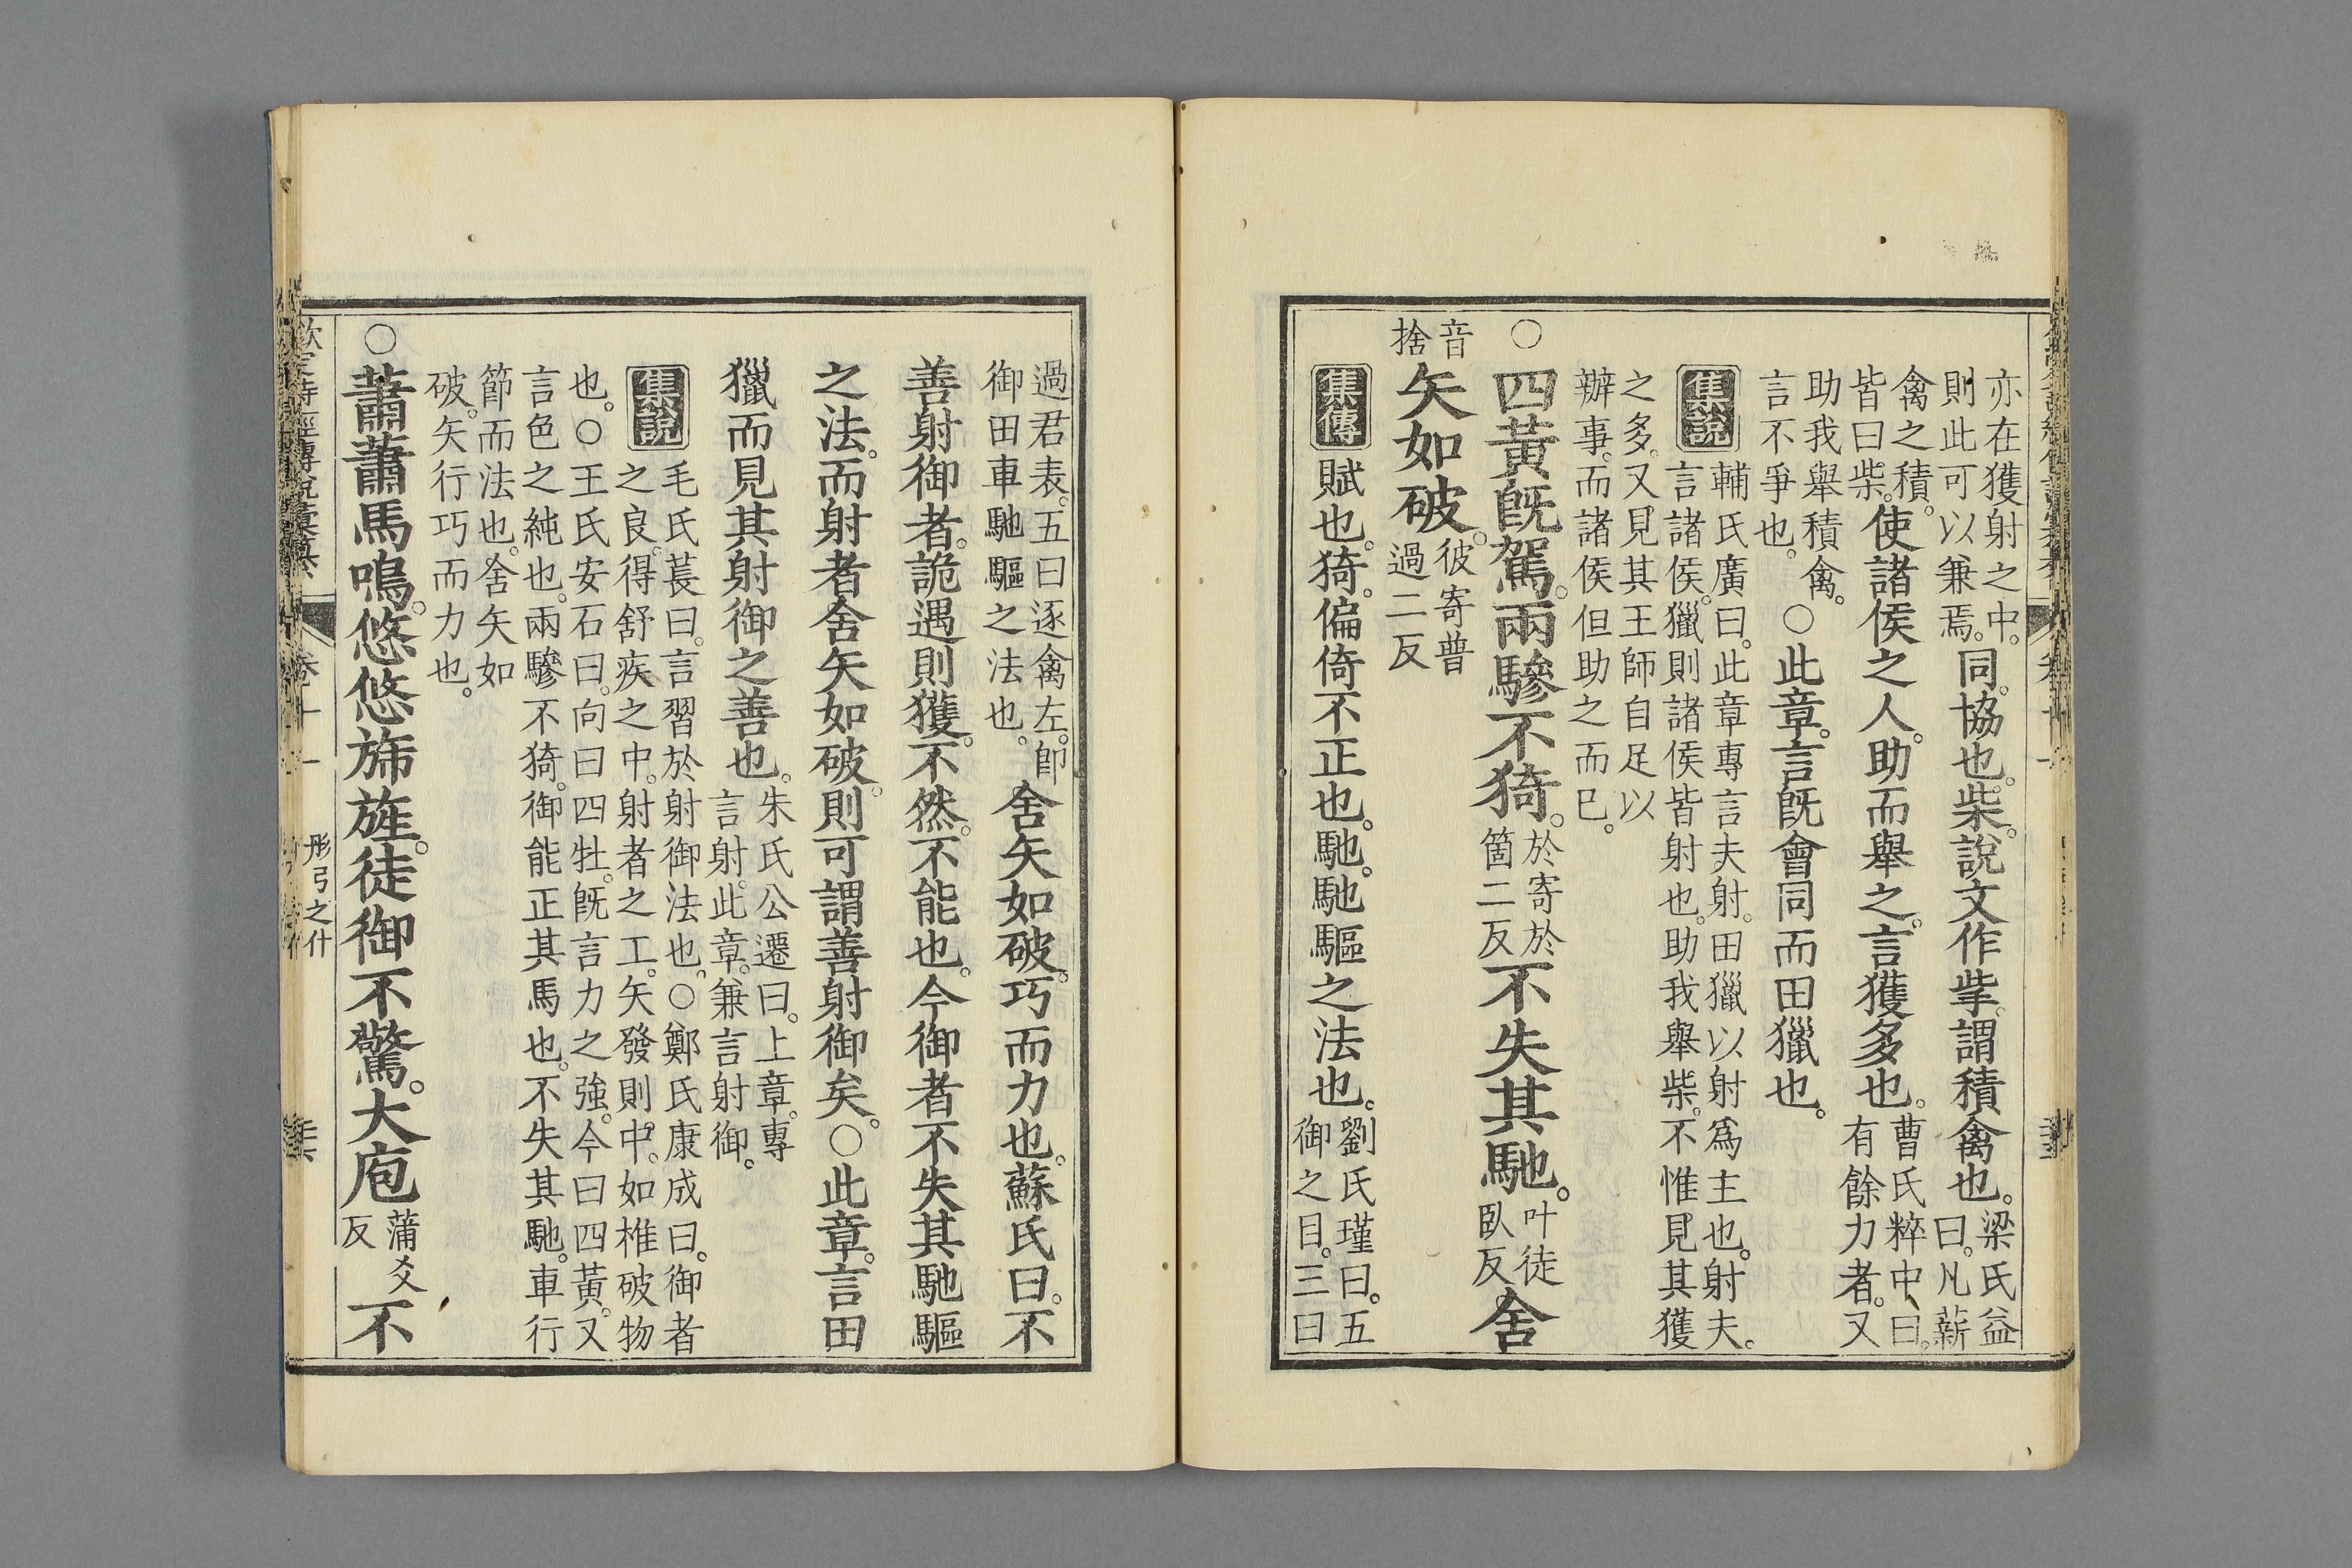 亦在獲射之中。
則此可以兼焉。
同。協也。柴。說文作㧘。謂積禽也。
梁氏益
曰。凡薪
禽之積。
皆曰柴。
使諸侯之人。助而舉之。言獲多也。
曹氏粹中曰。
有餘力者。又
助我舉積禽。
言不爭也。
○此章。言旣會同而田獵也。
集說
輔氏廣曰。此章專言夫射。田獵以射爲主也。射夫。
言諸侯。獵則諸侯皆射也。助我舉柴。不惟見其獲
之多。又見其王師自足以
辦事。而諸侯但助之而已。
○四黃旣駕。兩驂不猗。
於寄於
箇二反
不失其馳。
叶徒
臥反
舍
音
捨
矢如破。
彼寄普
過二反
集傳
賦也。猗。偏倚不正也。馳。馳驅之法也。
劉氏瑾曰。五
御之目。三曰
過君表。五曰逐禽左。卽
御田車馳驅之法也。
舍矢如破。巧而力也。蘇氏曰。不
善射御者。詭遇則獲。不然。不能也。今御者不失其馳驅
之法。而射者舍矢如破。則可謂善射御矣。○此章。言田
獵而見其射御之善也。
朱氏公遷曰。上章。專
言射。此章。兼言射御。
集說
毛氏萇曰。言習於射御法也。○鄭氏康成曰。御者
之良。得舒疾之中。射者之工。矢發則中。如椎破物
也。○王氏安石曰。向曰四牡。旣言力之強。今曰四黃。又
言色之純也。兩驂不猗。御能正其馬也。不失其馳。車行
節而法也。舍矢如
破。矢行巧而力也。
○蕭蕭馬鳴。悠悠旆旌。徒御不驚。大庖
蒲爻
反
不
欽定詩經傳說彙纂
卷十一
彤弓之什